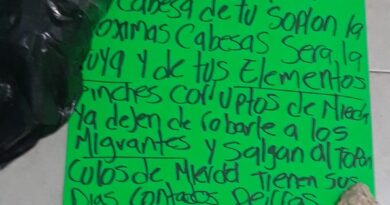 Cabesa de tu Soplon la
oximas Cabesas Sera, la
uya y de tus Elementos
Pinches corruptos de Mierda
Ya dejen de robarle a los
Migrantes y Salgan al Topon
Culos de Mierda Tienen sus
Dias Contados Perros